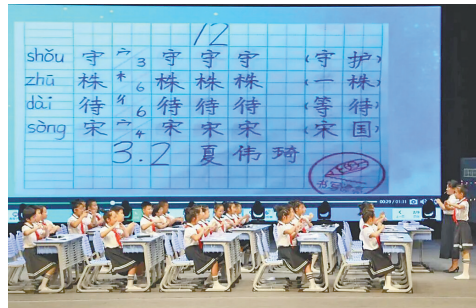 12
shǒu 守 宀 3 守 守 守 (守护)
zhū 株 木 6 株 株 株 (一株)
dài 待 彳 6 待 待 待 (等待)
sòng 宋 宀 4 宋 宋 宋 (宋国)
3.2 夏伟琦
00:29 / 01:11